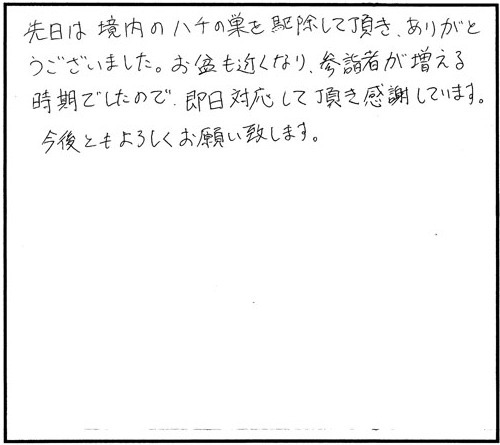 先日は境内のハチの巣を駆除して頂き、ありがと
うございました。お盆も近くなり、参詣者が増える
時期でしたので、即日対応して頂き感謝しています。
今後ともよろしくお願い致します。